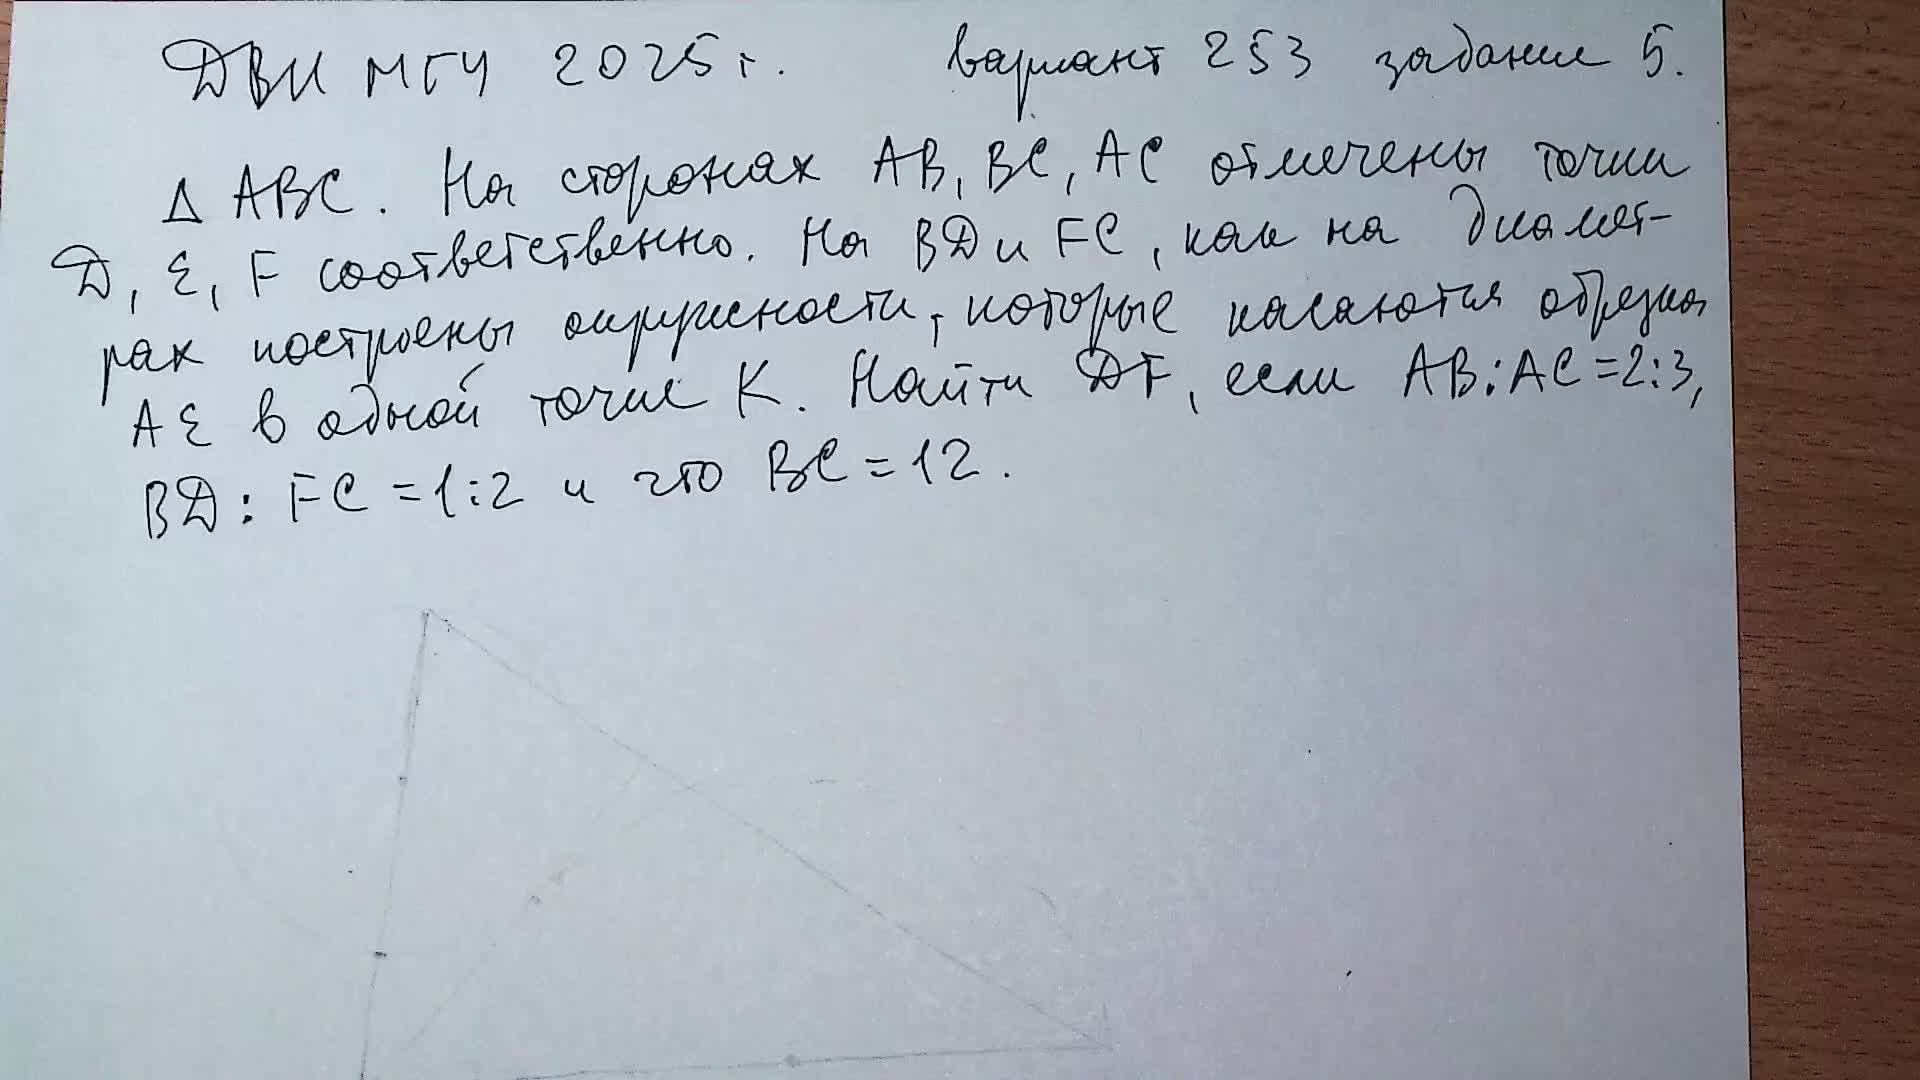 ДВИ МГУ 2025 г. вариант 253 задание 5.
Δ ABC. На сторонах AB, BC, AC отмечены точки
D, E, F соответственно. На BD и FC, как на диамет-
рах построены окружности, которые касаются отрезка
AE в одной точке K. Найти DF, если AB:AC=2:3,
BD:FC=1:2 и что BC=12.